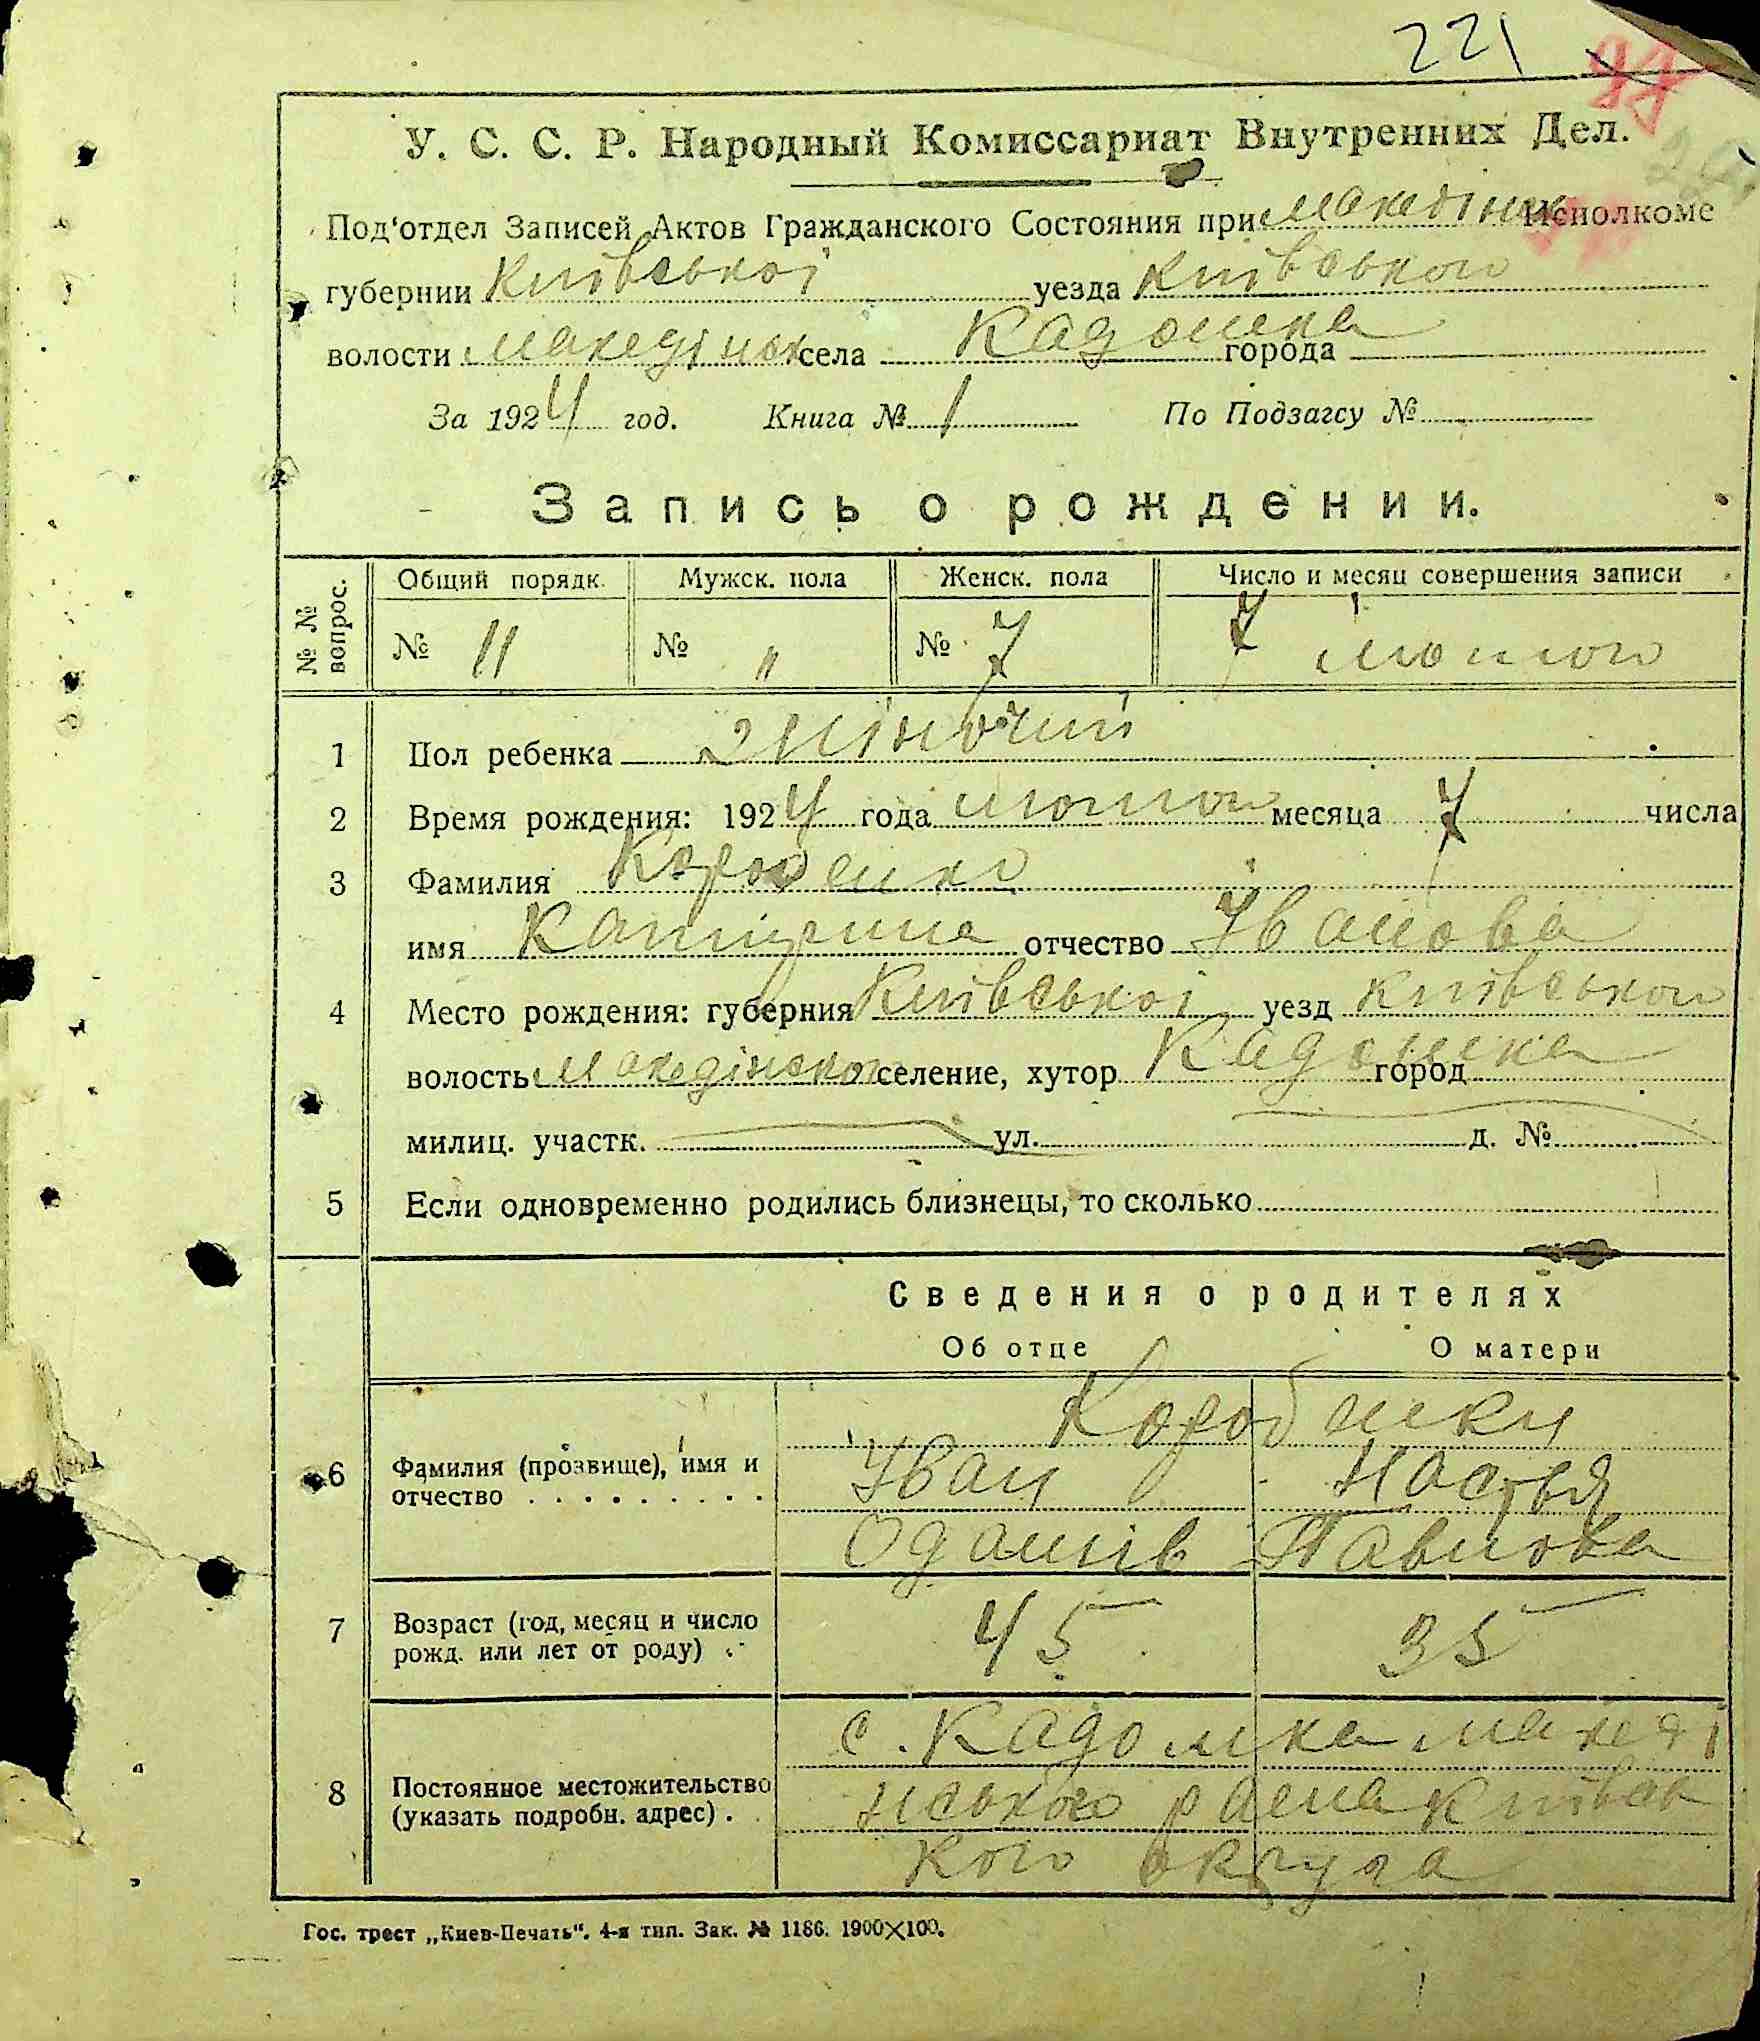 221
98
У. С. С. Р. Народный Комиссариат Внутренних Дел.
Под'отдел Записей Актов Гражданского Состояния при Македінск Исполкоме
губернии Київської уезда Київського
волости Македінськ села Кадомка города
За 1924 год. Книга № 1 По Подзагсу №
Запись о рождении.
№ № вопрос. Общий порядк. Мужск. пола Женск. пола Число и месяц совершения записи
№ 11 № " № 7 7 лютого
1 Пол ребенка жіночий
2 Время рождения: 1924 года лютого месяца 7 числа
3 Фамилия Коробенко
имя Катерина отчество Іванова
4 Место рождения: губерния Київської уезд Київського
волость Македінсько селение, хутор Кадомка город
милиц. участк. ул. д. №
5 Если одновременно родились близнецы, то сколько
Сведения о родителях
Об отце О матери
Коробенки
6 Фамилия (прозвище), имя и Іван Настья
отчество . . . . . . . . . Одамів Павлова
7 Возраст (год, месяц и число 45 35
рожд. или лет от роду) .
с. Кадомка Македі
8 Постоянное местожительство нського раена Київсь
(указать подробн. адрес) . кого округа
Гос. трест „Киев-Печать“. 4-я тип. Зак. № 1186. 1900×100.